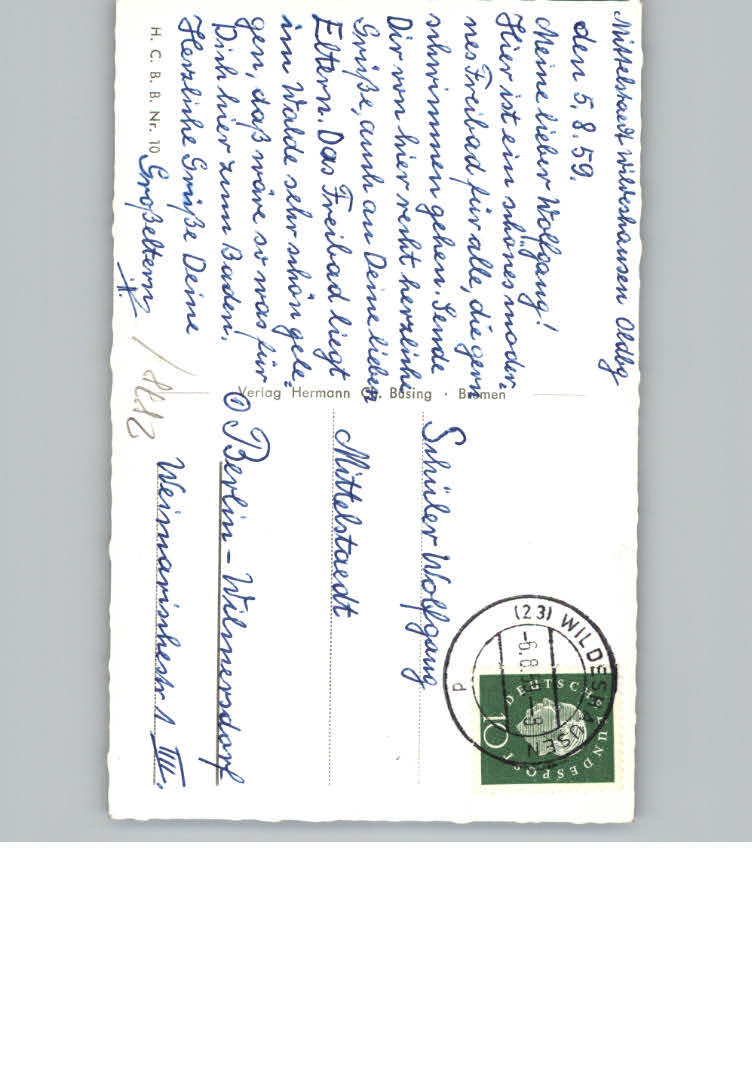 Mittelstaedt Wildeshausen Oldbg
den 5.8.59.
Meine lieber Wolfgang!
Hier ist ein schönes moder-
nes Freibad für alle, die gern
schwimmen gehen. Sende
Dir von hier recht herzliche
Grüße, auch an Deine lieben
Eltern. Das Freibad liegt
im Walde sehr schön gele-
gen, daß wäre so was für
Dich hier zum Baden.
Herzliche Grüße Deine
Großeltern
H. C. B. B. Nr. 10
Verlag Hermann Ch. Büsing · Bremen
(23) WILDESHAUSEN
-6.8.59.-9
P
DEUTSCHE BUNDESPOST
10
Schüler Wolfgang
Mittelstaedt
Berlin-Wilmersdorf
Weimarischestr 1 III.